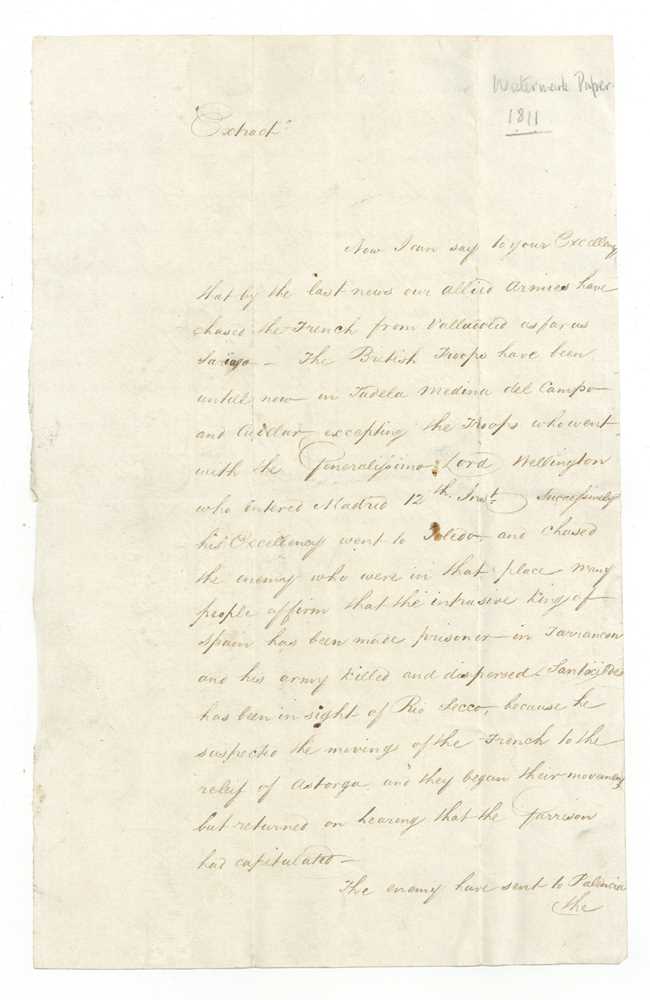 Watermark Paper
1811
Extract
Now I can say to your Excellency
that by the last news our allied Armies have
chased the French from Valladolid as far as
The British Troops have been
untill now in Tudela Medina del Campo
and Cuellar excepting the Troops who went
with the Generalissimo Lord Wellington
who entered Madrid 12th Inst. Successively
his Excellency went to Toledo, and chased
the enemy who were in that place many
people affirm that the intrusive King of
Spain has been made prisoner in Tarrancon
and his army killed and dispersed. Santocildes
has been in sight of Rio Secco, because he
suspected the movings of the French to the
relief of Astorga, and they began their movements
but returned on hearing that the Garrison
had capitulated—
The enemy have sent to Palencia
the